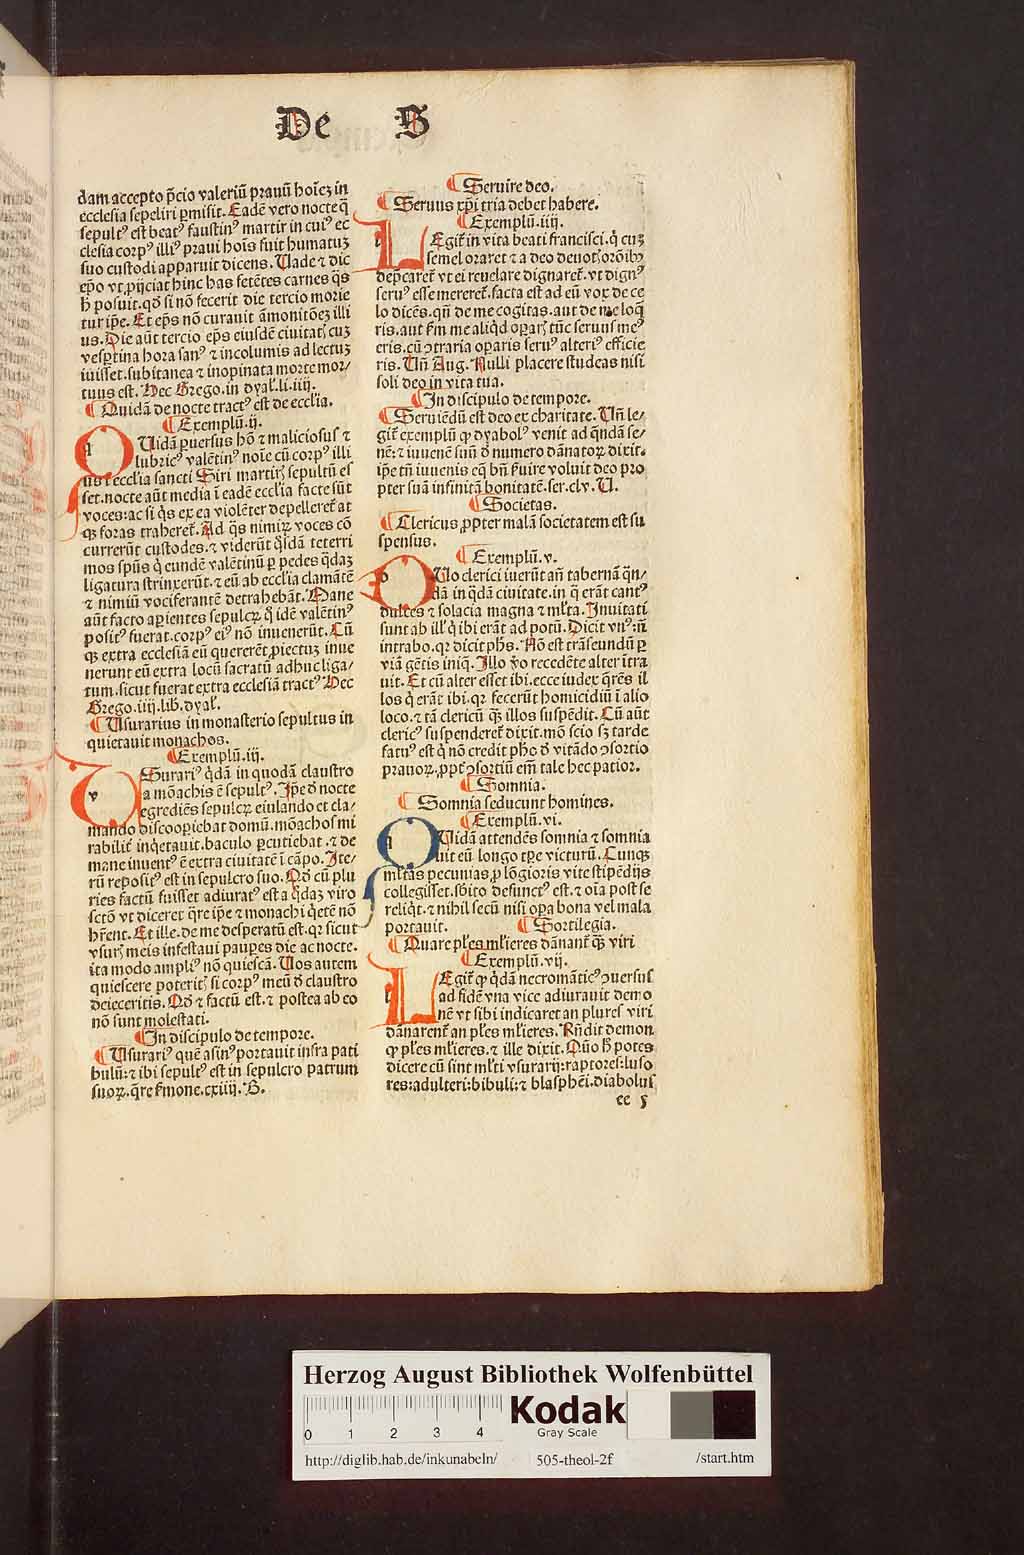 De S
dam accepto p̄cio valeriū prauū hoīeꝫ in
ecclesia sepeliri ꝑmisit. Eadē vero nocte q̄
sepultꝰ est beatꝰ faustinꝰ martir in cuiꝰ ec
clesia corpꝰ illiꝰ praui hoīs fuit humatuꝫ
suo custodi apparuit dicens. Uade ⁊ dic
ep̄o vt ꝓijciat hinc has fetētes carnes q̄s
h̄ posuit. qd̓ si nō fecerit die tercio morie
tur ip̄e. Et ep̄s nō curauit āmonitōeꝫ illi
us. Die aūt tercio ep̄s eiusdē ciuitatꝭ cuꝫ
vesꝑtina hora sanꝰ ⁊ incolumis ad lectuꝫ
iuisset. subitanea ⁊ inopinata morte mor/
tuus est. Hec Grego. in dyal̓. li. iiij.
¶ Quidā de nocte tractꝰ est de eccl̓ia.
¶ Exemplū. ij.
QUidā ꝑuersus hō ⁊ maliciosus ⁊
lubricꝰ valētinꝰ noīe cū corpꝰ illi
us ī eccl̓ia sancti Siri martirꝭ sepultū es
set. nocte aūt media ī eadē eccl̓ia facte sūt
voces: ac si q̓s ex ea violēter depelleret̄ at
qꝫ foras traheret̄. Ad q̄s nimiꝝ voces cō
currerūt custodes. ⁊ viderūt q̓sdā teterri
mos spūs q̓ eundē valētinū ꝑ pedes q̄daꝫ
ligatura strinxerūt. ⁊ eū ab eccl̓ia clamātē
⁊ nimiū vociferantē detrahebāt. Mane
aūt facto aꝑientes sepulcꝝ q̓ idē valētinꝰ
positꝰ fuerat. corpꝰ eiꝰ nō inuenerūt. Cū
qꝫ extra ecclesiā eū quererēt ꝓiectuꝫ inue
nerunt eū extra locū sacratū adhuc liga/
tum. sicut fuerat extra ecclesiā tractꝰ Hec
Grego. iiij. lib. dyal̓.
¶ Usurarius in monasterio sepultus in
quietauit monachos.
¶ Exemplū. iij.
USurariꝰ q̓dā in quodā claustro
a mōachis ē sepultꝰ. Ip̄e d̓ nocte
egrediēs sepulcꝝ eiulando et cla/
mando discoopiebat domū. mōachos mi
rabilit̄ inq̓etauit. baculo ꝑcutiebat. ⁊ de
mane inuentꝰ ē extra ciuitatē ī cāpo. Ite/
rū repositꝰ est in sepulcro suo. Qd̓ cū plu
ries factū fuisset adiuratꝰ est a q̓daꝫ viro
sctō vt diceret q̄re ip̄e ⁊ monachi q̓etē nō
hr̄ent. Et ille. de me desperatū est. qꝛ sicut
vsurꝭ meis infestaui pauꝑes die ac nocte.
ita modo ampliꝰ nō quiescā. Uos autem
quiescere poteritꝭ si corpꝰ meū d̓ claustro
deieceritis. Qd̓ ⁊ factū est. ⁊ postea ab eo
nō sunt molestati.
¶ In discipulo de tempore.
¶ Usurariꝰ quē asinꝰ portauit infra pati
bulū: ⁊ ibi sepultꝰ est in sepulcro patrum
suoꝝ. q̄re sꝛmone. cxiiij. B.
¶ Seruire deo.
¶ Seruus xp̄i tria debet habere.
¶ Exemplū. iiij.
LEgit̄ in vita beati francisci. q̓ cuꝫ
semel oraret ⁊ a deo deuotꝭ orōibꝫ
dep̄caret̄ vt ei reuelare dignaret̄. vt dignꝰ
seruꝰ esse mereret̄. facta est ad eū vox de ce
lo dicēs. qn̄ de me cogitas. aut de me loq̄
ris. aut ẜm me aliq̓d oꝑarꝭ tūc seruus meꝰ
eris. cū ꝯtraria oꝑaris seruꝰ alteriꝰ efficie
ris. Un̄ Aug. Nulli placere studeas nisi
soli deo in vita tua.
¶ In discipulo de tempore.
¶ Seruiēdū est deo ex charitate. Un̄ le/
git̄ exemplū ꝙ dyabolꝰ venit ad q̄ndā se/
nē: ⁊ iuuenē suū d̓ numero dānatoꝝ dixit.
ip̄e tn̄ iuuenis eq̓ bn̄ ẜuire voluit deo pro
pter suā infinitā bonitatē. ser. clv. U.
¶ Societas.
¶ Clericus ꝓpter malā societatem est su
spensus.
¶ Exemplū. v.
DUo clerici iuerūt añ tabernā q̄n/
dā in q̓dā ciuitate. in q̄ erāt cantꝰ
dulces ⁊ solacia magna ⁊ ml̓ta. Inuitati
sunt ab ill̓ q̓ ibi erāt ad potū. Dicit vnꝰ: n̄
intrabo. qꝛ dicit ph̓s. Nō est trāseundū ꝑ
viā gētis iniq̄. Illo v̓o recedēte alter ītra
uit. Et cū alter esset ibi. ecce iudex q̄rēs il
los q̓ erāt ibi. qꝛ fecerūt homicidiū ī alio
loco. ⁊ tā clericū qꝫ illos suspēdit. Cū aūt
clericꝰ suspenderet̄ dixit. mō scio sꝫ tarde
fatuꝰ est q̓ nō credit ph̓o d̓ vitādo ꝯsortio
prauoꝝ. ꝓpt̓ ꝯsortiū em̄ tale hec patior.
¶ Somnia.
¶ Somnia seducunt homines.
¶ Exemplū. vi.
QUidā attendēs somnia ⁊ somnia
uit eū longo tꝑe victurū. Cunqꝫ
ml̓tas pecunias ꝓ lōgioris vite stipēdijs
collegisset. sb̓ito defunctꝰ est. ⁊ oīa post se
reliq̓t. ⁊ nihil secū nisi oꝑa bona vel mala
portauit. ¶ Sortilegia.
¶ Quare pl̓es ml̓ieres dānant̄ qꝫ viri
¶ Exemplū. vij.
LEgit̄ ꝙ q̓dā necromāticꝰ ꝯuersus
ad fidē vna vice adiurauit demo
nē vt sibi indicaret an plures viri
dānarent̄ an pl̓es ml̓ieres. Rn̄dit demon
ꝙ pl̓es ml̓ieres. ⁊ ille dixit. Quō h̄ potes
dicere cū sint ml̓ti vsurarij: raptores: luso
res: adulteri: bibuli: ⁊ blasphēi. diabolus
ee 5
Herzog August Bibliothek Wolfenbüttel
0 1 2 3 4
Kodak
Gray Scale
http://diglib.hab.de/inkunabeln/ 505-theol-2f /start.htm